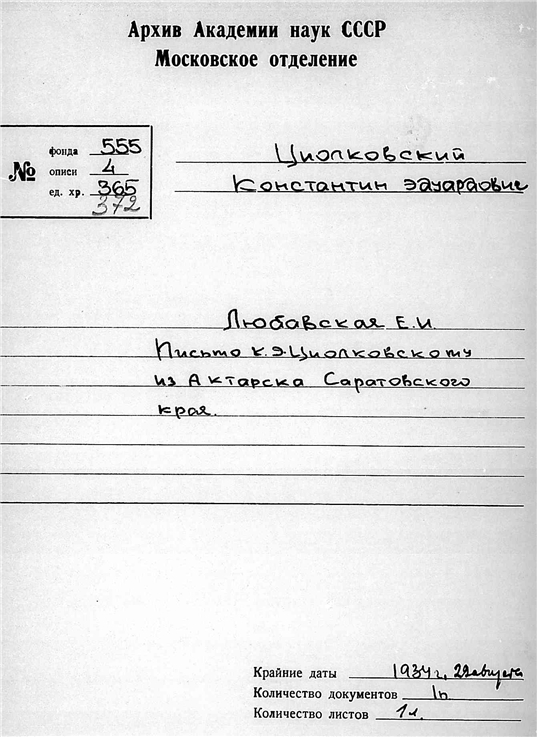 Архив Академии наук СССР
Московское отделение
№
фонда 555
описи 4
ед. хр. 365
372
Циолковский
Константин Эдуардович
Любавская Е.И.
Письмо К.Э.Циолковскому
из Актарска Саратовского
края.
Крайние даты 1934 г, 22 августа
Количество документов 1
Количество листов 1 л.